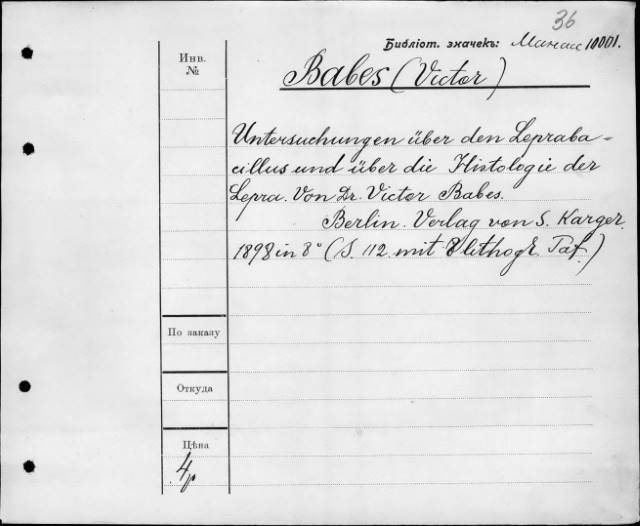 36
Библіот. значекъ: Минаи 10001.
Инв.
№
Babes (Victor)
Untersuchungen über den Lepraba-
cillus und über die Histologie der
Lepra. Von Dr. Victor Babes.
Berlin. Verlag von S. Karger.
1898 in 8° (S. 112. mit 8 lithogr. Taf.)
По заказу
Откуда
Цѣна
4р